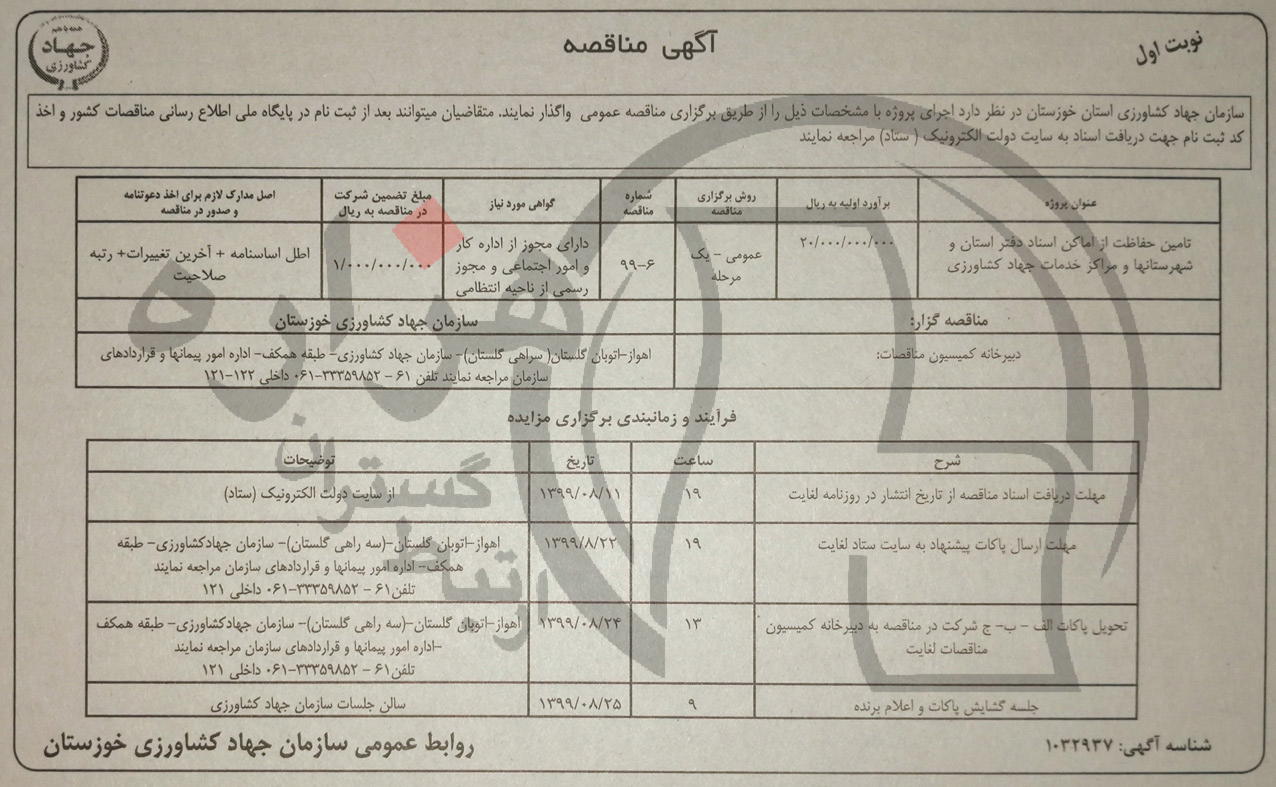 نوبت اول
آگهی مناقصه
همه با هم
جهاد
کشاورزی
سازمان جهاد کشاورزی استان خوزستان در نظر دارد اجرای پروژه با مشخصات ذیل را از طریق برگزاری مناقصه عمومی واگذار نمایند. متقاضیان میتوانند بعد از ثبت نام در پایگاه ملی اطلاع رسانی مناقصات کشور و اخذ
کد ثبت نام جهت دریافت اسناد به سایت دولت الکترونیک ( ستاد) مراجعه نمایند
عنوان پروژه
برآورد اولیه به ریال
روش برگزاری
مناقصه
شماره
مناقصه
گواهی مورد نیاز
مبلغ تضمین شرکت
در مناقصه به ریال
اصل مدارک لازم برای اخذ دعوتنامه
و صدور در مناقصه
تامین حفاظت از اماکن اسناد دفتر استان و
شهرستانها و مراکز خدمات جهاد کشاورزی
۲۰/۰۰۰/۰۰۰/۰۰۰
عمومی – یک
مرحله
۹۹-۶
دارای مجوز از اداره کار
و امور اجتماعی و مجوز
رسمی از ناحیه انتظامی
۱/۰۰۰/۰۰۰/۰۰۰
اطل اساسنامه + آخرین تغییرات+ رتبه
صلاحیت
مناقصه گزار:
سازمان جهاد کشاورزی خوزستان
دبیرخانه کمیسیون مناقصات:
اهواز–اتوبان گلستان( سراهی گلستان)– سازمان جهاد کشاورزی– طبقه همکف– اداره امور پیمانها و قراردادهای
سازمان مراجعه نمایند تلفن ۶۱ – ۳۳۳۵۹۸۵۲-۰۶۱ داخلی ۱۲۲–۱۲۱
فرآیند و زمانبندی برگزاری مزایده
شرح
ساعت
تاریخ
توضیحات
مهلت دریافت اسناد مناقصه از تاریخ انتشار در روزنامه لغایت
۱۹
۱۳۹۹/۰۸/۱۱
از سایت دولت الکترونیک (ستاد)
مهلت ارسال پاکات پیشنهاد به سایت ستاد لغایت
۱۹
۱۳۹۹/۸/۲۲
اهواز–اتوبان گلستان–(سه راهی گلستان)– سازمان جهادکشاورزی– طبقه
همکف– اداره امور پیمانها و قراردادهای سازمان مراجعه نمایند
تلفن۶۱ – ۳۳۳۵۹۸۵۲-۰۶۱ داخلی ۱۲۱
تحویل پاکات الف – ب– ج شرکت در مناقصه به دبیرخانه کمیسیون
مناقصات لغایت
۱۳
۱۳۹۹/۰۸/۲۴
اهواز–اتوبان گلستان–(سه راهی گلستان)– سازمان جهادکشاورزی– طبقه همکف
–اداره امور پیمانها و قراردادهای سازمان مراجعه نمایند
تلفن۶۱ – ۳۳۳۵۹۸۵۲-۰۶۱ داخلی ۱۲۱
جلسه گشایش پاکات و اعلام برنده
۹
۱۳۹۹/۰۸/۲۵
سالن جلسات سازمان جهاد کشاورزی
شناسه آگهی: ۱۰۳۲۹۳۷
روابط عمومی سازمان جهاد کشاورزی خوزستان
هزاره
گستران
ارتباط